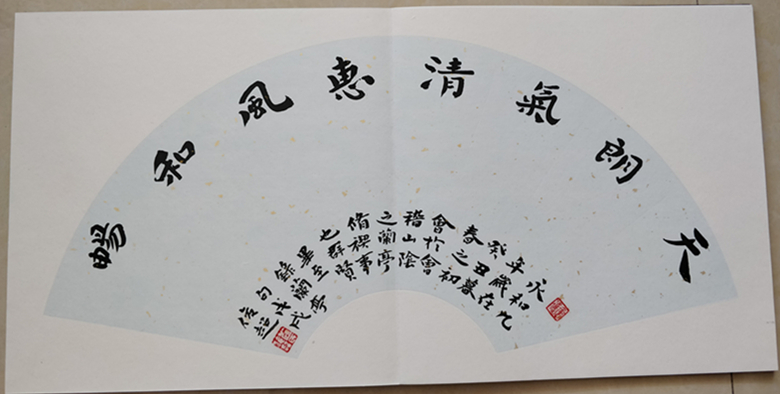 天朗氣清惠風和暢
永和九
年歲在
癸丑暮
春之初
會於會
稽山陰
之蘭亭
脩禊事
也群賢
畢至
錄蘭亭
句戊戌
俊超